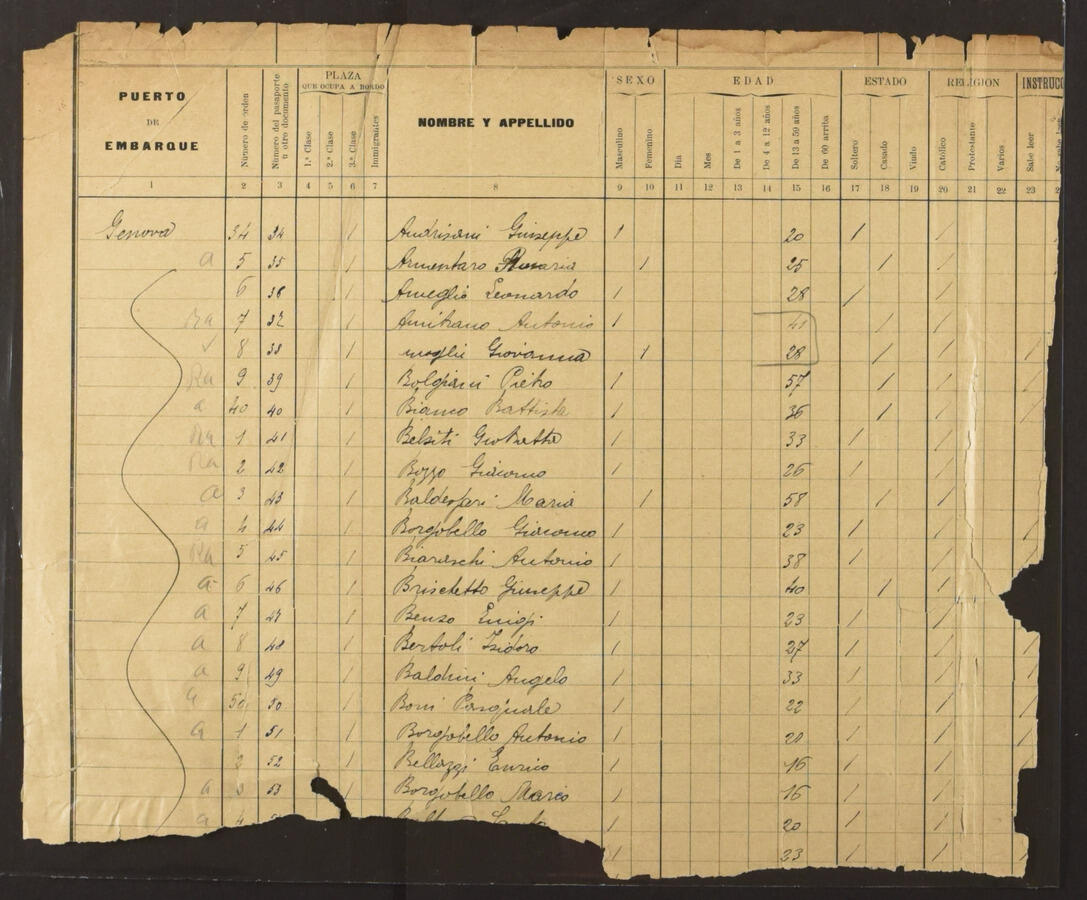 PUERTO DE EMBARQUE
Número de orden
Número del pasaporte u otro documento
PLAZA
QUE OCUPA A BORDO
1.ª Clase
2.ª Clase
3.ª Clase
Inmigrantes
NOMBRE Y APPELLIDO
SEXO
Masculino
Femenino
EDAD
Dia
Mes
De 1 a 3 años
De 4 a 12 años
De 13 a 59 años
De 60 arriba
ESTADO
Soltero
Casado
Viudo
RELIGION
Católico
Protestante
Varios
INSTRUCC
Sabe leer
1 2 3 4 5 6 7 8 9 10 11 12 13 14 15 16 17 18 19 20 21 22 23 2
Genova 34 34 / Andrisani Giuseppe / 20 / /
a 5 35 / Armentaro / 25 / /
6 36 / Ameglio Leonardo / 28 / /
Ra 7 37 / Amitrano Antonio / 41 / /
8 38 / moglie Giovanna / 28 / / /
Ra 9 39 / Bolgiani Pietro / 57 / /
a 40 40 / Bianco Battista / 36 / /
Ra 1 41 / Belsiti / 33 / /
Ra 2 42 / Bozzo Giacomo / 26 / /
a 3 43 / Maria / 58 / /
a 4 44 / Borgobello Giacomo / 23 / / /
Ra 5 45 / Antonio / 38 / / /
a 6 46 / Brischetto Giuseppe / 40 / / /
a 7 47 / Benzo Luigi / 23 / / /
a 8 48 / Bertoli Isidoro / 27 / / /
a 9 49 / Baldini Angelo / 33 / / /
a 50 50 / Boni Pasquale / 22 / / /
a 1 51 / Borgobello Antonio / 20 / / /
2 52 / Bellazzi Enrico / 16 / /
a 3 53 / Borgobello Marco / 16 / /
a 4 / 20 / /
/ 23 / /